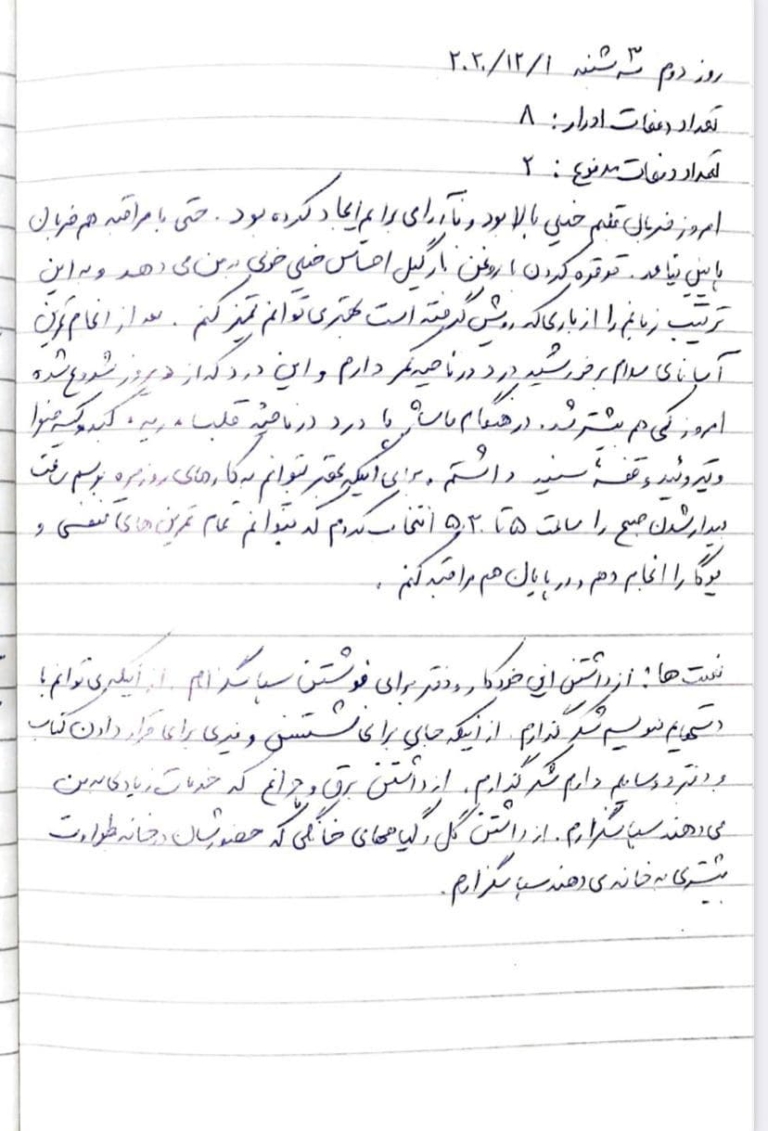 روز دوم ۳ شنبه ۲۰۲۰/۱۲/۱
تعداد دفعات ادرار: ۸
تعداد دفعات مدفوع: ۲
امروز ضربان قلبم خیلی بالا بود و ناآرامی برایم ایجاد کرده بود. حتی با مراقبه هم ضربان
پایین نیامد. قرقره کردن با روغن نارگیل احساس خیلی خوبی به من می دهد و به این
ترتیب زبانم را از باری که رویش گرفته است بهتر می توانم تمیز کنم. بعد از انجام تمرین
آسانای سلام بر خورشید درد در ناحیه کمر دارم و این درد که از دیروز شروع شده
امروز کمی هم بیشتر شد. در هنگام ماساژ با درد در ناحیه قلب، ریه، کبد، کیسه صفرا
و تیروئید و قفسهٔ سینه داشتم. برای اینکه بهتر بتوانم به کارهای روزمره برسم ساعت
بیدار شدن صبح را ساعت ۵ تا ۵.۳۰ انتخاب کردم که بتوانم تمام تمرین های تنفسی و
یوگا را انجام دهم و در پایان هم مراقبه کنم.
نعمت ها: از داشتن این خودکار و دفتر برای نوشتن سپاسگزارم. از اینکه می توانم با
دستهایم بنویسم شکرگذارم. از اینکه جایی برای نشستن و میزی برای قرار دادن کتاب
و دفتر و وسایلم دارم شکرگذارم. از داشتن برق و چراغ که خدمات زیادی به من
می دهند سپاسگزارم. از داشتن گل و گیاههای خانگی که حضورشان در خانه طراوت
بیشتری به خانه می دهند سپاسگزارم.